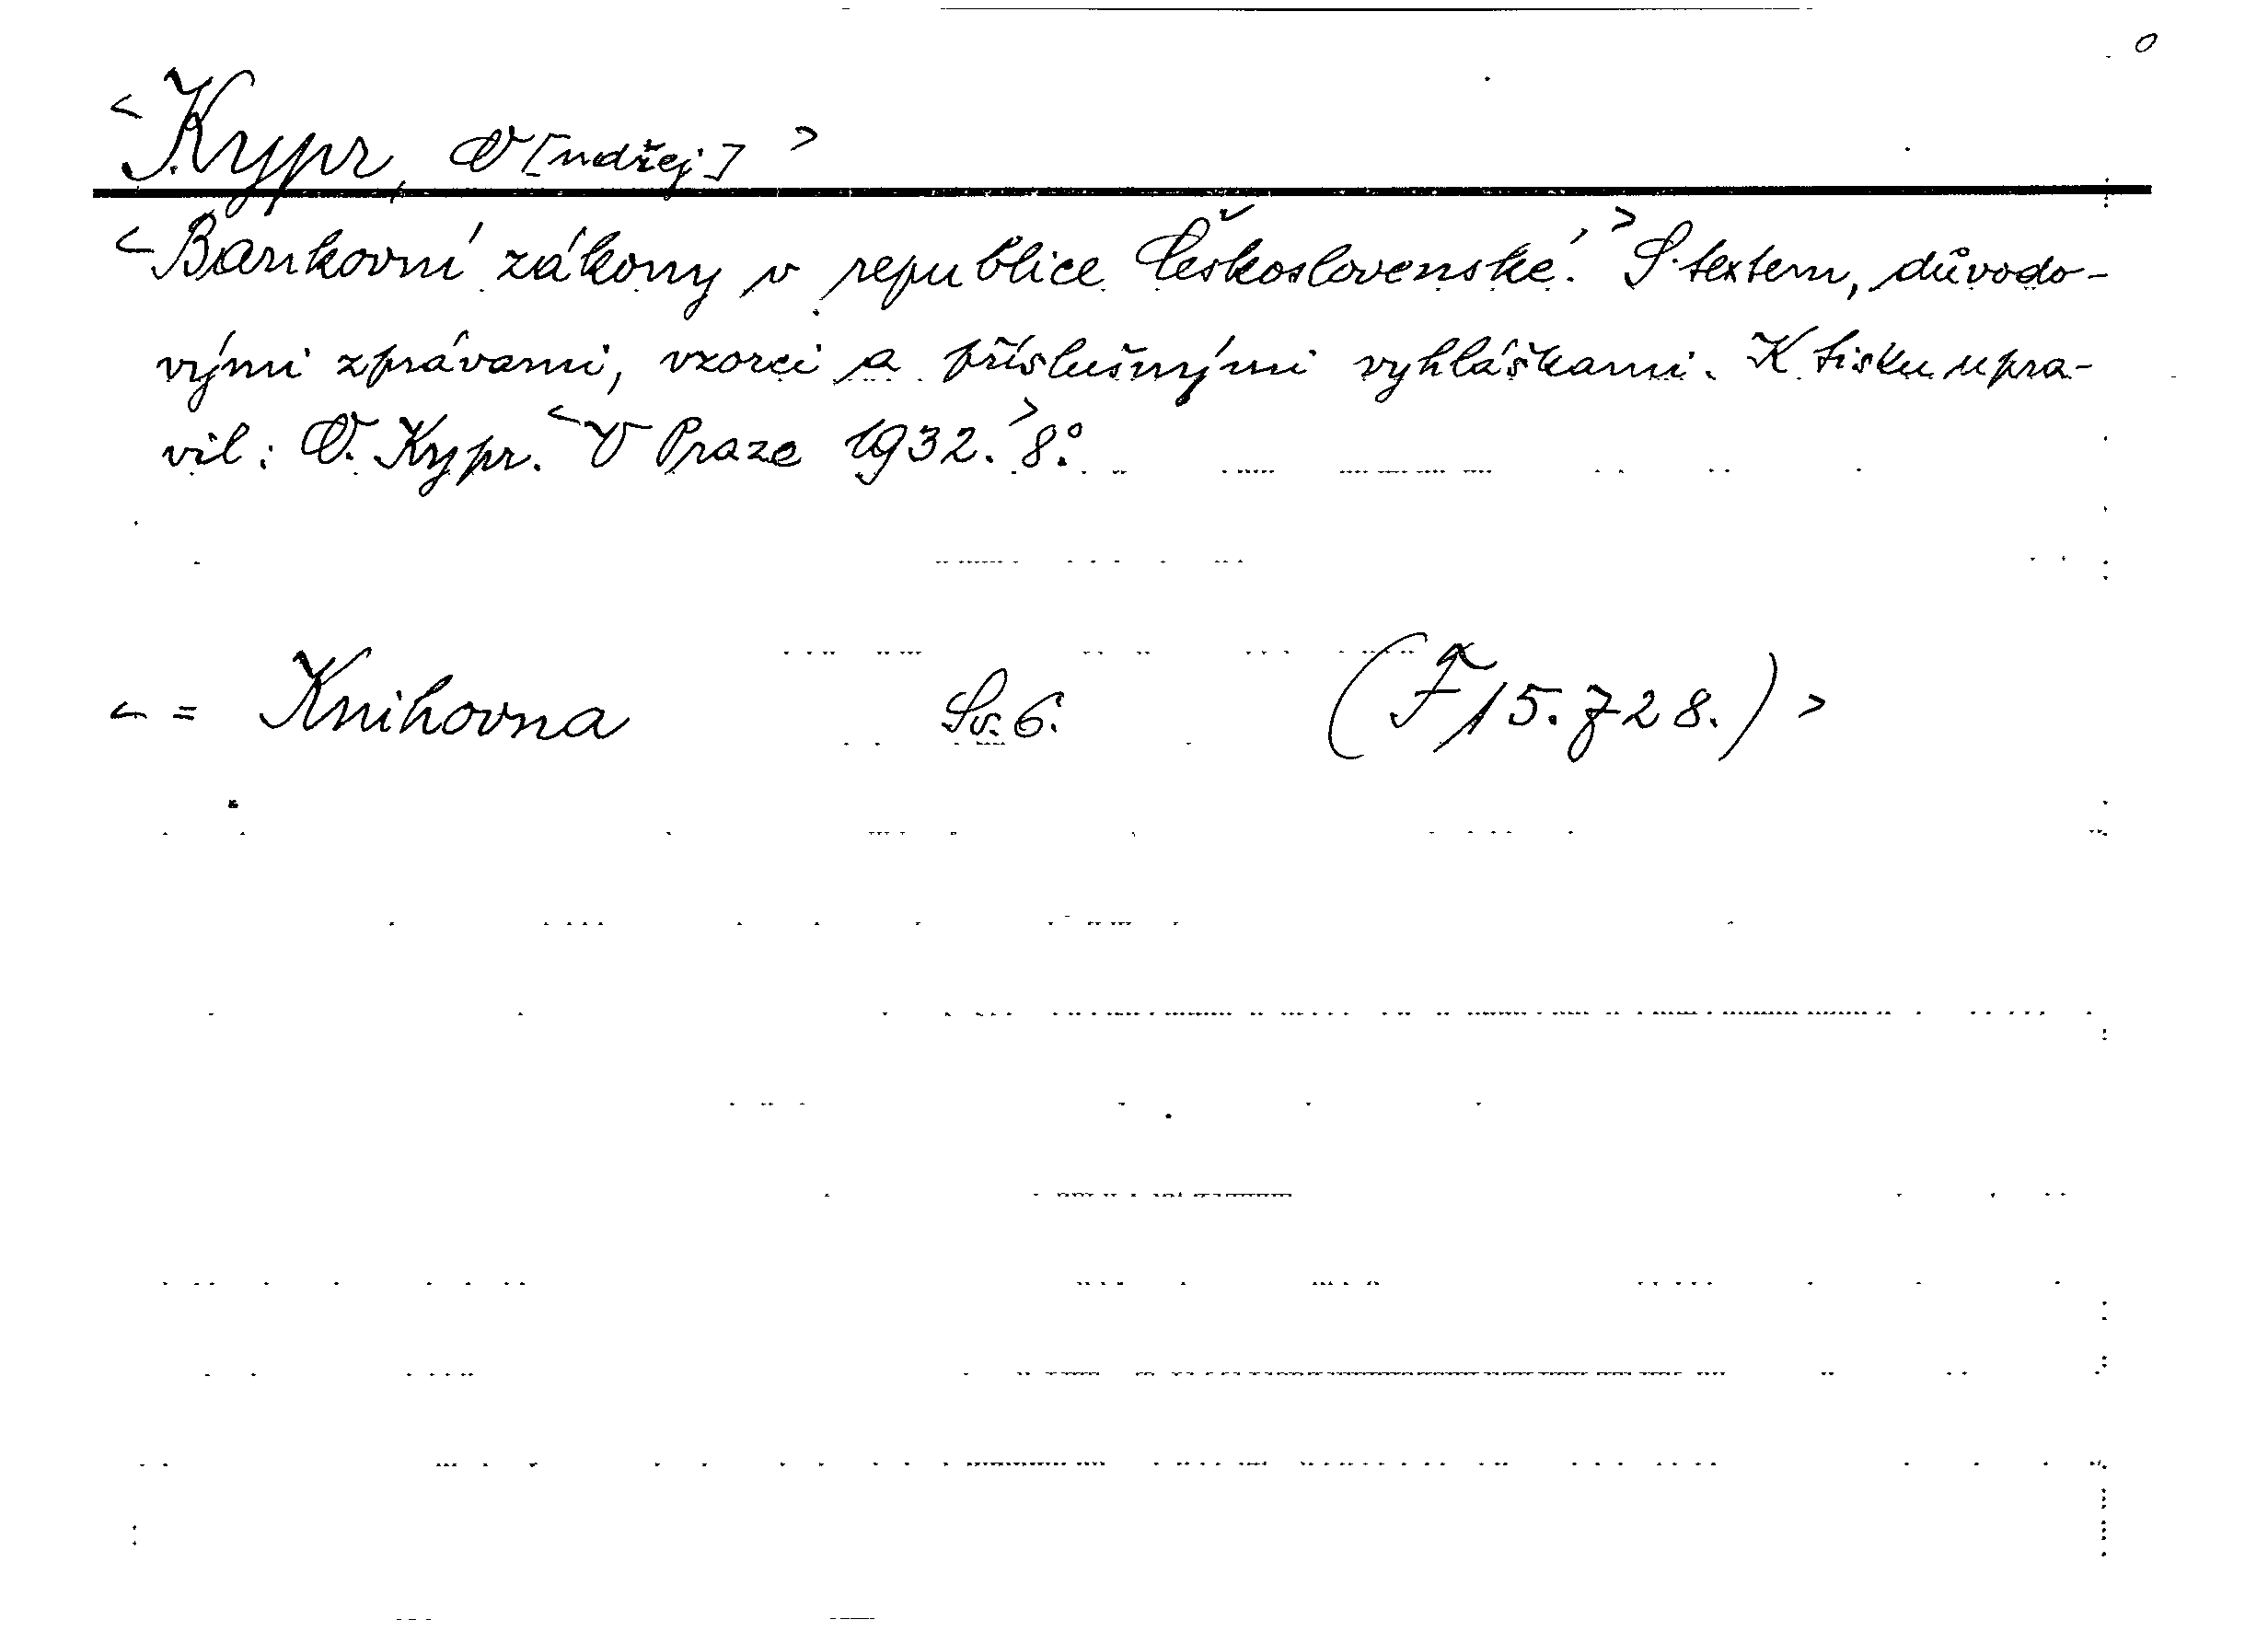 0
<Kypr, O[ndřej]>
<Bankovní zákony v republice Československé.> S textem, důvodo-
vými zprávami, vzorci a příslušnými vyhláškami. K tisku upra-
vil: O. Kypr. <V Praze 1932.> 8°.
<= Knihovna Sv. 6. (F 15.728.)>